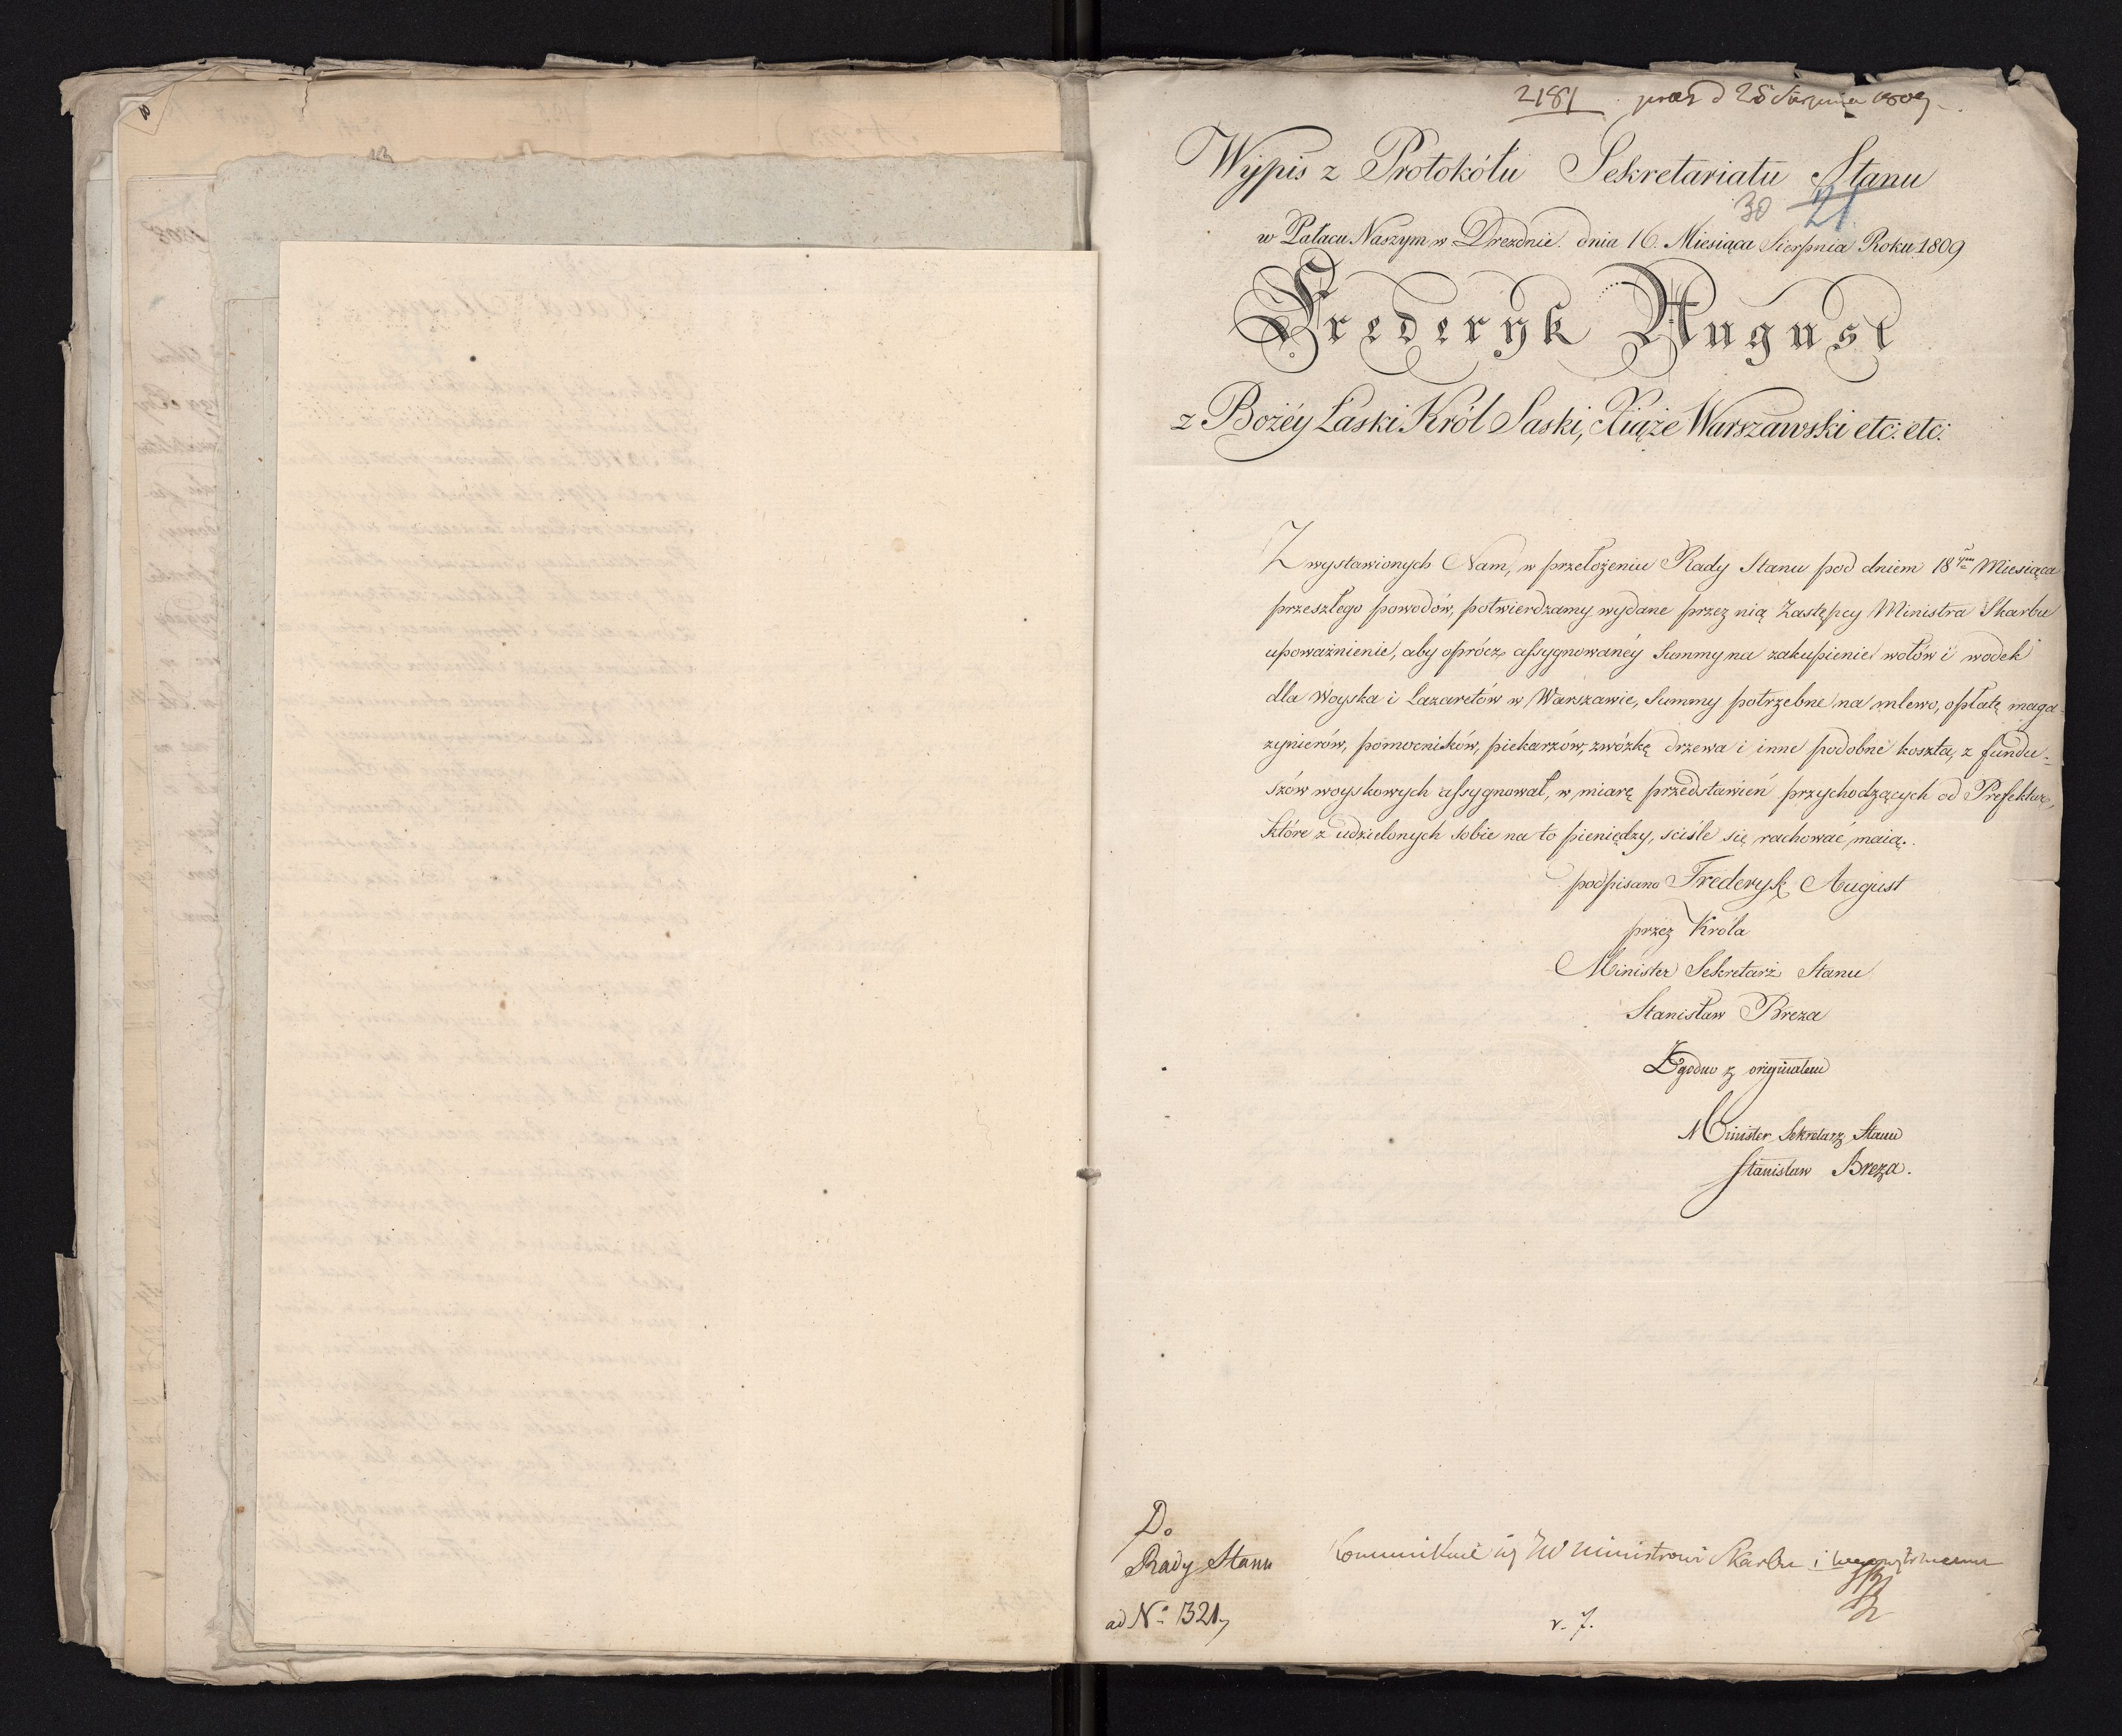 2181 praes d 28 Sierpnia 1809
Wypis z Protokółu Sekretariatu Stanu
30 21
w Pałacu Naszym w Dreznie. dnia 16. Miesiąca Sierpnia Roku 1809
Frederyk August
z Bożéy Łaski Król Saski, Xiąże Warszawski etc: etc:
Z wystawionych Nam, w przełożeniu Rady Stanu pod dniem 18ym Miesiąca
przeszłego powodów, potwierdzamy wydane przez nią Zastępcy Ministra Skarbu
upoważnienie, aby oprócz assygnowanéy Summy na zakupienie wołów i wodek
dla Woyska i Lazaretów w Warszawie, Summy potrzebne na mlewo, opłatę maga-
zynierów, pomocników, piekarzów, zwózkę drzewa i inne podobne koszta, z fundu-
szów woyskowych assygnował, w miarę przedstawień przychodzących od Prefektur,
które z udzielonych sobie na to pieniędzy, sciśle się rachować maią.
podpisano Frederyk August
przez Króla
Minister Sekretarz Stanu
Stanisław Breza
Zgodno z originałem
Minister Sekretarz Stanu
Stanisław Breza.
Do
Rady Stanu
ad No 1321,
Kommunikuie się JW Ministrowi Skarbu i wewnętrznemu
v. 7.